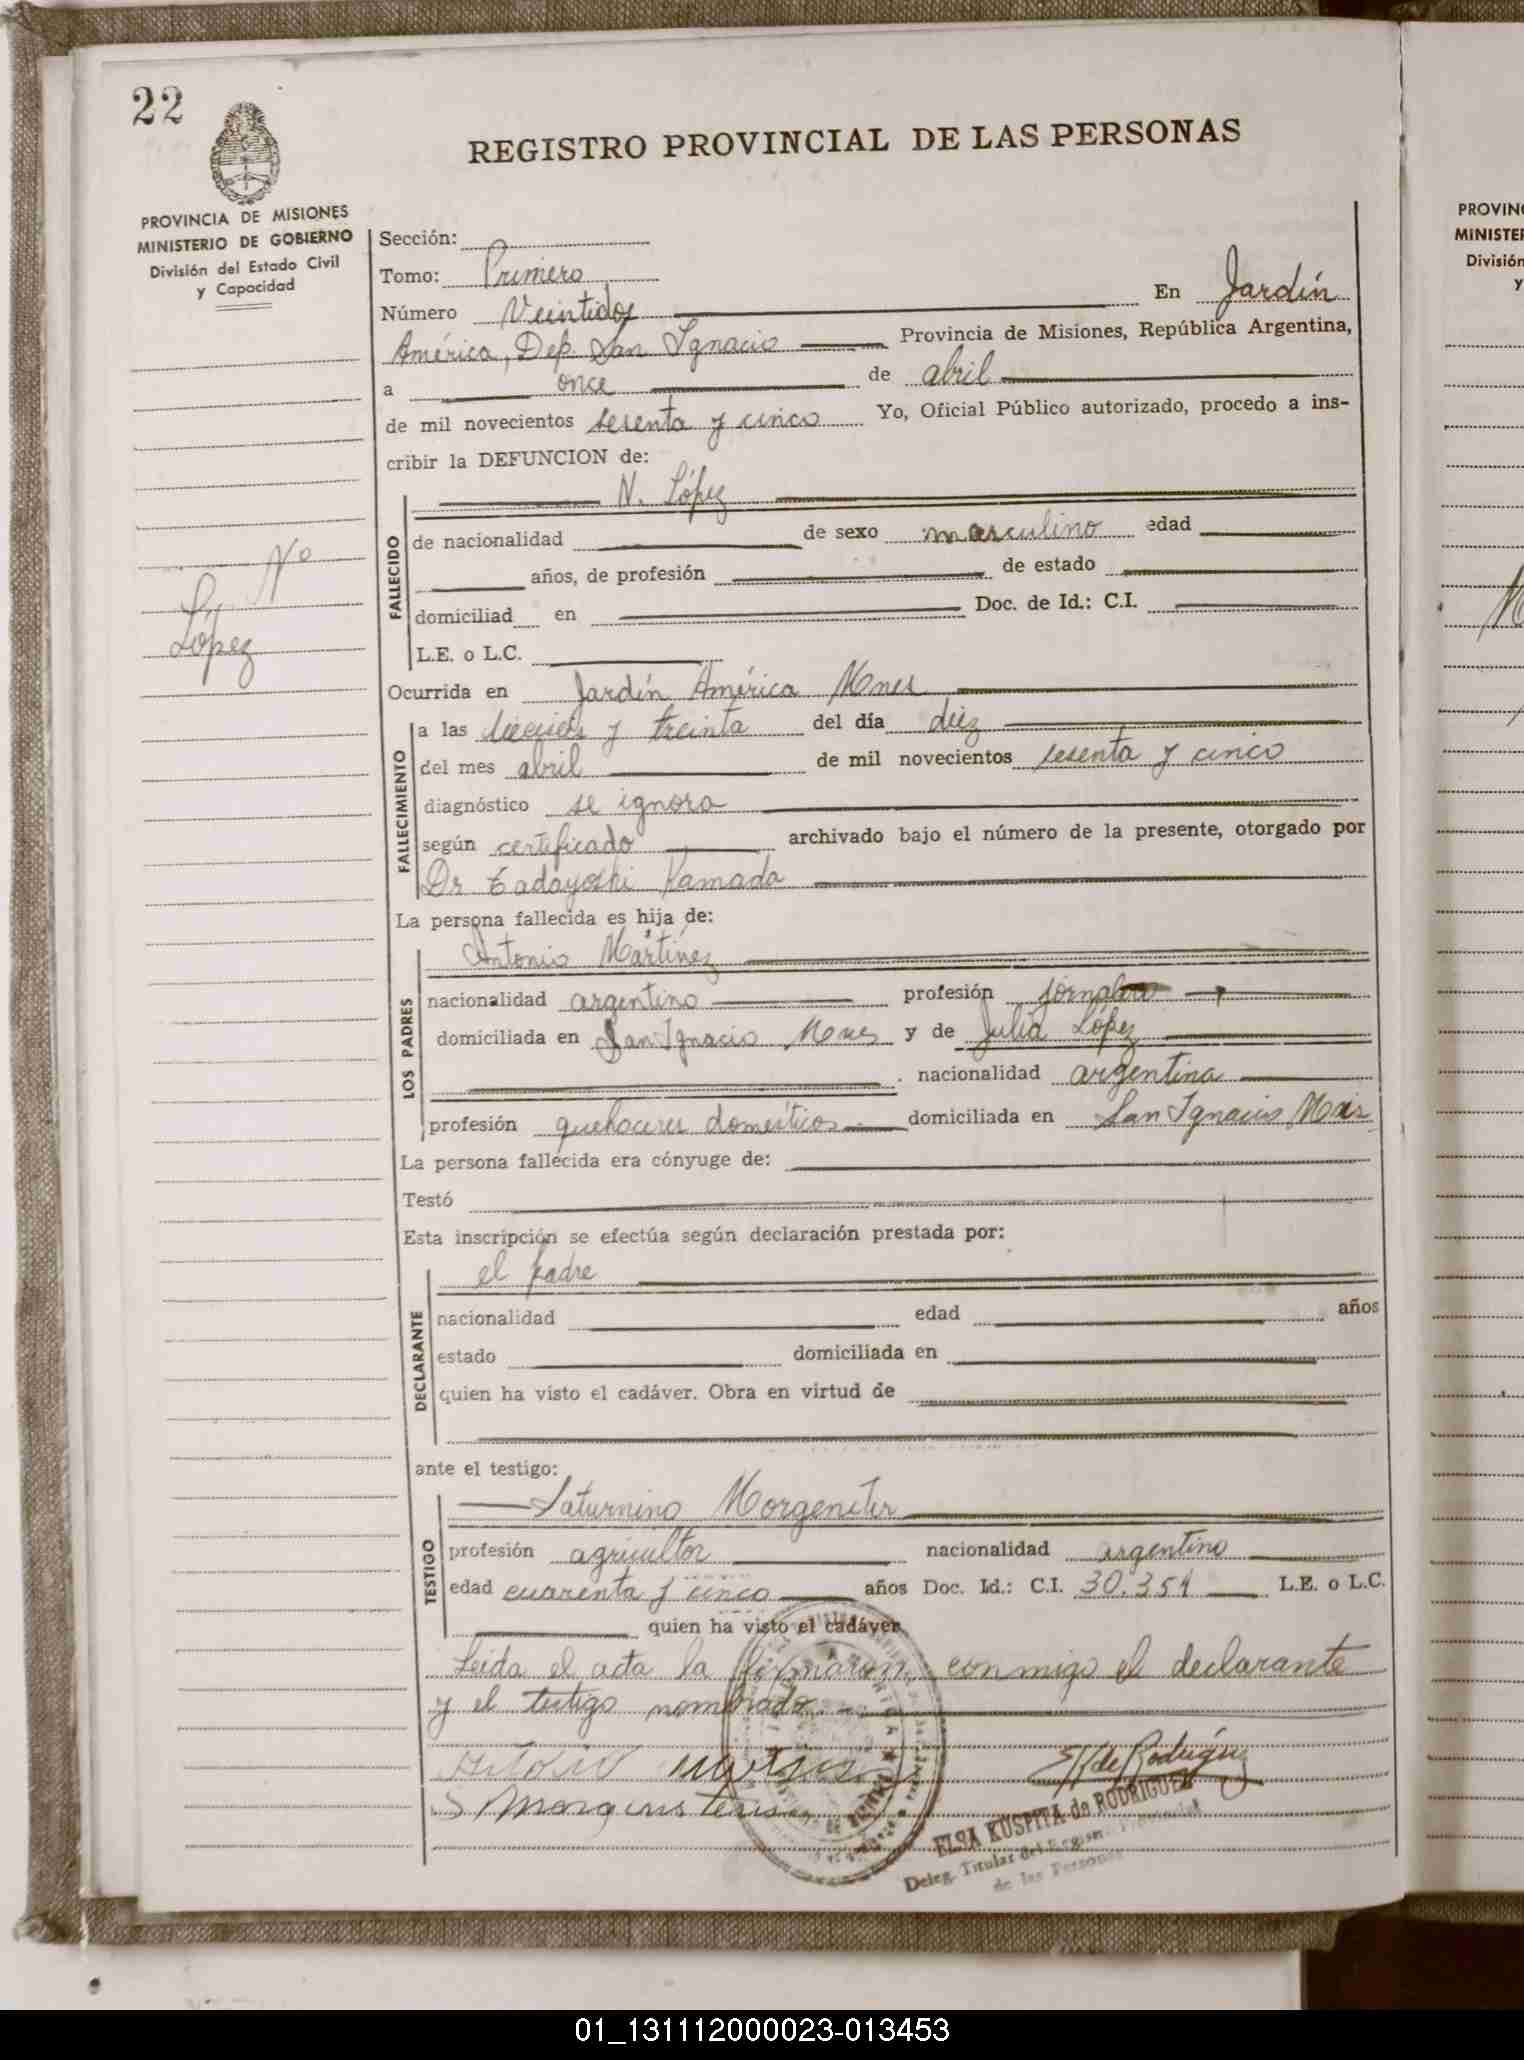 22
REGISTRO PROVINCIAL DE LAS PERSONAS
PROVINCIA DE MISIONES
MINISTERIO DE GOBIERNO
División del Estado Civil
y Capacidad
Sección:
Tomo: Primero
Número Veintidos En Jardín
América, Dep. San Ignacio Provincia de Misiones, República Argentina,
a once de abril
de mil novecientos sesenta y cinco Yo, Oficial Público autorizado, procedo a ins-
cribir la DEFUNCION de:
N. López
FALLECIDO
de nacionalidad de sexo masculino edad
años, de profesión de estado
domiciliad en Doc. de Id.: C.I.
L.E. o L.C.
Nº
López
Ocurrida en Jardín América Mnes
FALLECIMIENTO
a las y treinta del día diez
del mes abril de mil novecientos sesenta y cinco
diagnóstico se ignora
según certificado archivado bajo el número de la presente, otorgado por
Dr Tadayoshi Kamada
La persona fallecida es hija de:
LOS PADRES
Antonio Martínez
nacionalidad argentino profesión jornalero
domiciliada en San Ignacio Mnes y de Julia López
nacionalidad argentina
profesión quehaceres domésticos domiciliada en San Ignacio Mnes
La persona fallecida era cónyuge de:
Testó
Esta inscripción se efectúa según declaración prestada por:
DECLARANTE
el padre
nacionalidad edad años
estado domiciliada en
quien ha visto el cadáver. Obra en virtud de
ante el testigo:
TESTIGO
Saturnino
profesión agricultor nacionalidad argentino
edad cuarenta y cinco años Doc. Id.: C.I. 30.354 L.E. o L.C.
quien ha visto el cadáver
Leida el acta la firmaron conmigo el declarante
y el testigo nombrado.
E K de Rodríguez
ELSA KUSPITA de RODRIGUEZ
Deleg. Titular del Registro Provincial
de las Personas
PROVINC
MINISTER
División
y
01_131112000023-013453